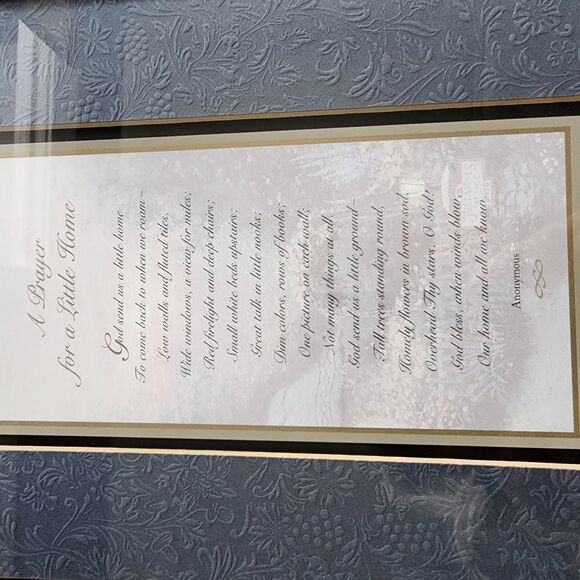 A Prayer
for a Little Home
God send us a little home
To come back to when we roam–
Low walls and fluted tiles,
Wide windows, a view for miles;
Red firelight and deep chairs;
Small white beds upstairs;
Great talk in little nooks;
Dim colors, rows of books;
One picture in each wall;
Not many things at all.
God send us a little ground–
Tall trees standing round,
Homely flowers in brown sod,
Overhead Thy stars, O God!
God bless, when winds blow,
Our home and all we know.
Anonymous